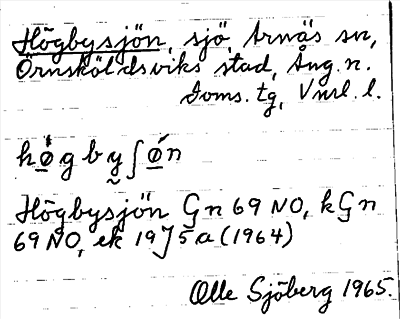 Högbysjön, sjö, Arnäs sn,
Örnsköldsviks stad, Ång. n.
Doms. tg, Vnrl. l.
hø̀gbyʃǿn
Högbysjön Gn 69 NO, kGn
69 NO, ek 19J5a (1964)
Olle Sjöberg 1965.